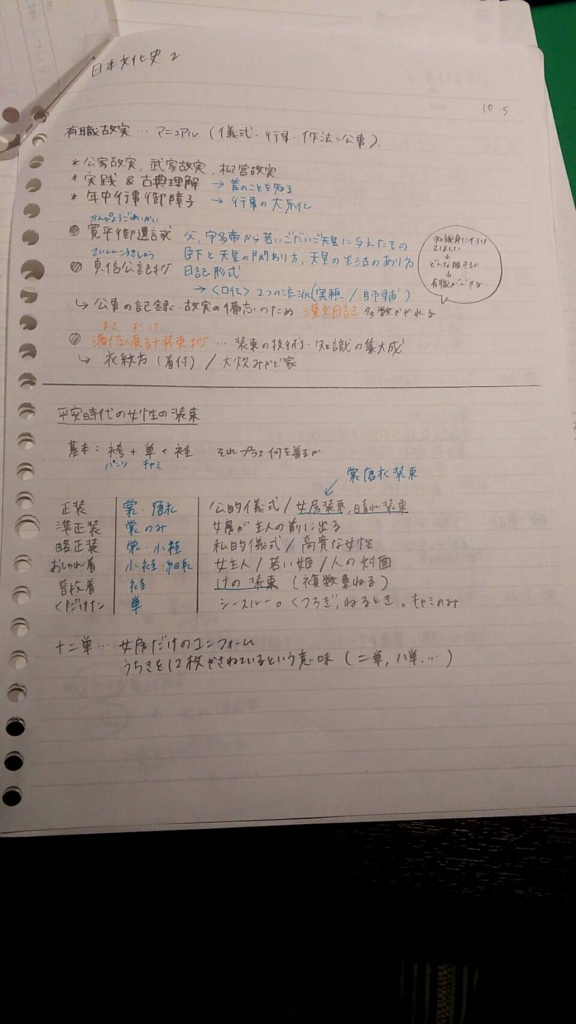 日本文化史 2
10 5
有職故実 … マニュアル (儀式・行事・作法=公事)
* 公家故実, 武家故実, 柳営故実
* 実践 & 古典理解 → 昔のことを知る
* 年中行事御障子 → 行事の大系化
かんぴょうごゆいかい
寛平御遺誡 父, 宇多帝から若いごだいご天皇に与えたもの
臣下と天皇の関わり方, 天皇の生活のあり方
ていしんこうきしょう
貞信公記抄 日記形式
→ <口伝> 2つの流派 (実頼 / 師輔)
↳ 公事の記録・故実の備忘のため 漢文日記 多数かかれる
知識身に付けて
ほしい
↓
どんな服きるか
↓
有職ができる
装束抄 … 装束の技術・知識の集大成
↳ 衣紋方 (着付) / 大炊みかど家
平安時代の女性の装束
基本 : 袴 + 単 + 袿 それプラス何を着るか
パンツ キャミ
裳唐衣装束
正装 裳・唐衣 公的儀式 / 女房装束, 晴れ装束
準正装 裳のみ 女房が主人の前に出る
略正装 裳・小袿 私的儀式 / 高貴な女性
おしゃれ着 小袿・細長 女主人 / 若い姫 / 人の対面
普段着 袿 けの装束 (複数重ねる)
くだけた 単 シースルー。くつろぎ, ねるとき。キャミのみ
十二単 … 女房だけのユニフォーム
うちきを12枚かさねているという意味 (二単, 八単, …)